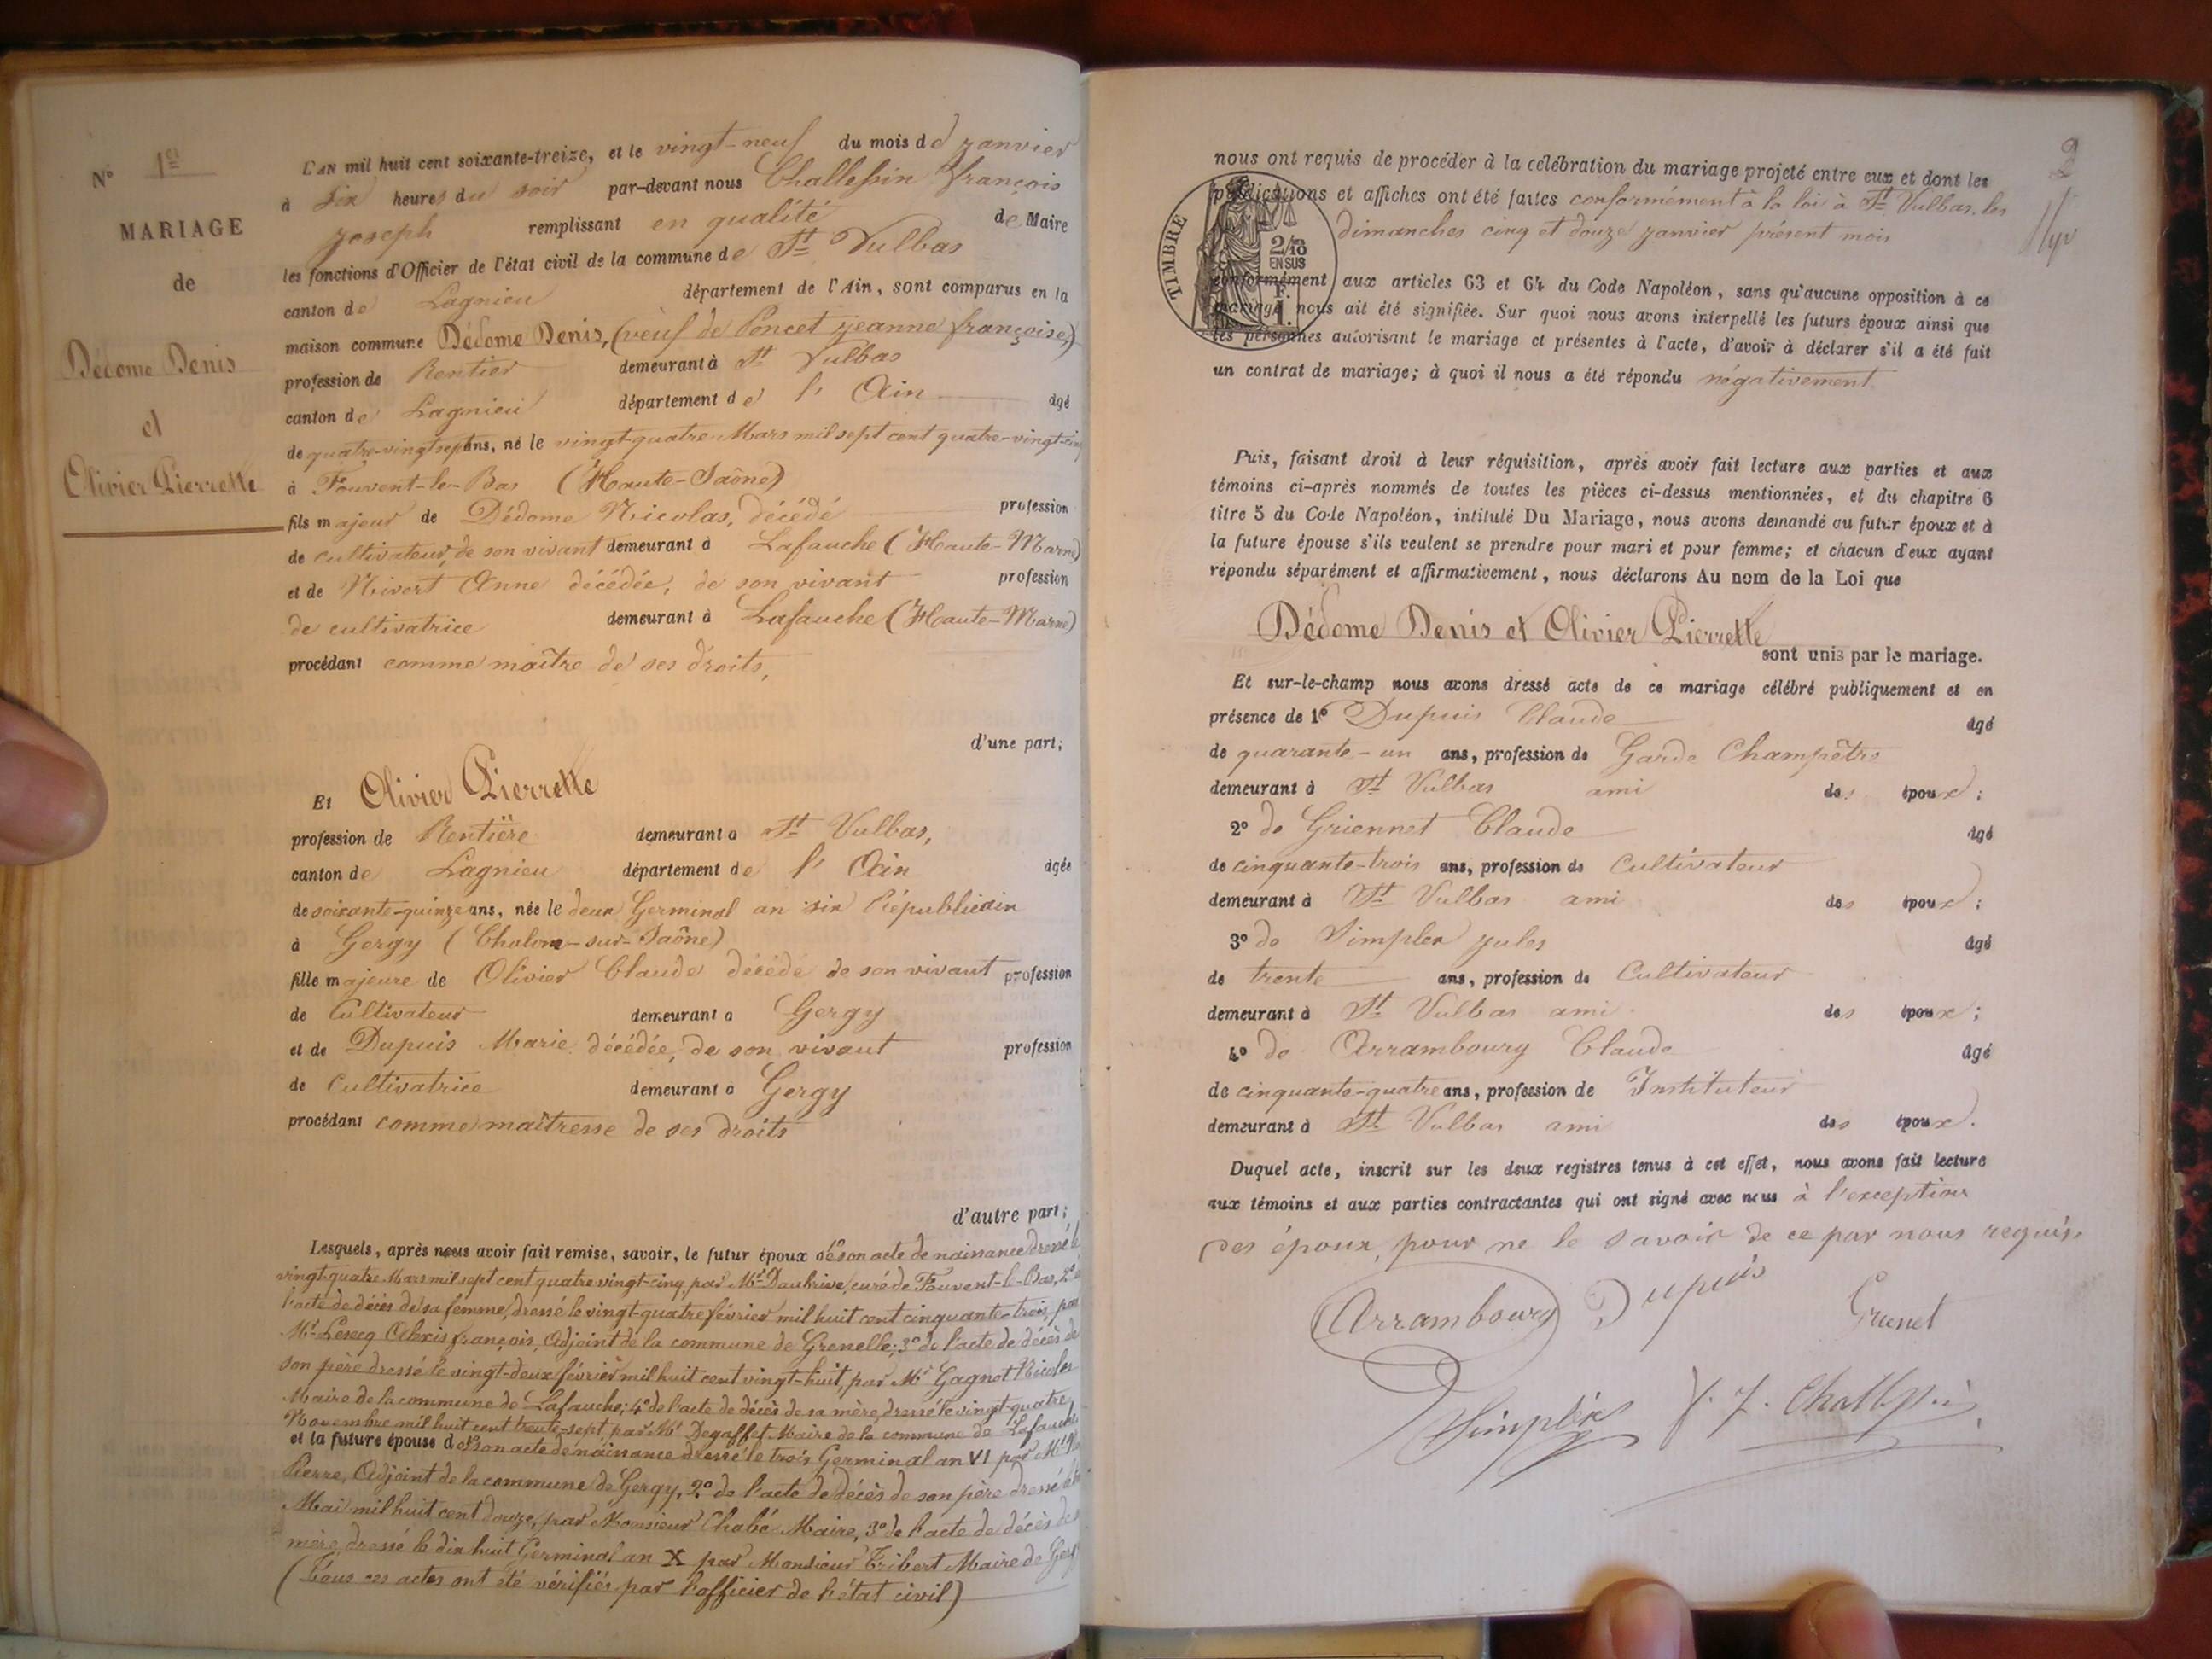 N° 1er
MARIAGE
de
Dédome Denis
et
Olivier Pierrette
L'AN mil huit cent soixante-treize, et le vingt-neuf du mois de janvier
à six heures du soir par-devant nous Challessin françois
joseph remplissant en qualité de Maire
les fonctions d'Officier de l'état civil de la commune de St Vulbas
canton de Lagnieu département de l'Ain, sont comparus en la
maison commune Dédome Denis, (veuf de Poncet jeanne françoise,)
profession de Rentier demeurant à St Vulbas
canton de Lagnieu département de l'Ain âgé
de quatre-vingt sept ans, né le vingt-quatre Mars mil sept cent quatre-vingt-cinq
à Fouvent-le-Bas (Haute-Saône)
fils majeur de Dédome Nicolas, décédé profession
de cultivateur, de son vivant demeurant à Lafauche (Haute-Marne)
et de Nivert Anne décédée, de son vivant profession
de cultivatrice demeurant à Lafauche (Haute-Marne)
procédant comme maître de ses droits,
d'une part;
Et Olivier Pierrette
profession de Rentière demeurant à St Vulbas,
canton de Lagnieu département de l'Ain âgée
de soixante-quinze ans, née le deux Germinal an six Républicain
à Gergy (Chalon-sur-Saône)
fille majeure de Olivier Claude décédé de son vivant profession
de Cultivateur demeurant à Gergy
et de Dupuis Marie décédée, de son vivant profession
de Cultivatrice demeurant à Gergy
procédant comme maîtresse de ses droits
d'autre part;
Lesquels, après nous avoir fait remise, savoir, le futur époux de 1° son acte de naissance dressé le
vingt-quatre Mars mil sept cent quatre vingt-cinq, par Mr Daubrive, curé de Fouvent-le-Bas, 2° de
l'acte de décès de sa femme, dressé le vingt-quatre février mil huit cent cinquante-trois, par
Mr Lesecq Alexis françois, Adjoint de la commune de Grenelle; 3° de l'acte de décès de
son père dressé le vingt-deux février mil huit cent vingt-huit, par Mr Gagnot Nicolas
Maire de la commune de Lafauche; 4° de l'acte de décès de sa mère, dressé le vingt-quatre
Novembre mil huit cent trente-sept, par Mr Degaffet Maire de la commune de Lafauche
et la future épouse de 1° son acte de naissance dressé le trois Germinal an VI par Mr
Pierre, Adjoint de la commune de Gergy, 2° de l'acte de décès de son père dressé le
Mai mil huit cent douze, par Monsieur Chabé Maire, 3° de l'acte de décès de sa
mère, dressé le dix huit Germinal an X par Monsieur Tribert Maire de Gergy
(Tous ces actes ont été vérifiés par l'officier de l'état civil)
2
nous ont requis de procéder à la célébration du mariage projeté entre eux et dont les
publications et affiches ont été faites conformément à la loi à St Vulbas, les
dimanches cinq et douze janvier présent mois
TIMBRE
2/10
EN SUS
F.
1.
conformément aux articles 63 et 64 du Code Napoléon, sans qu'aucune opposition à ce
mariage nous ait été signifiée. Sur quoi nous avons interpellé les futurs époux ainsi que
les personnes autorisant le mariage et présentes à l'acte, d'avoir à déclarer s'il a été fait
un contrat de mariage; à quoi il nous a été répondu négativement.
Puis, faisant droit à leur réquisition, après avoir fait lecture aux parties et aux
témoins ci-après nommés de toutes les pièces ci-dessus mentionnées, et du chapitre 6
titre 5 du Code Napoléon, intitulé Du Mariage, nous avons demandé au futur époux et à
la future épouse s'ils veulent se prendre pour mari et pour femme; et chacun d'eux ayant
répondu séparément et affirmativement, nous déclarons Au nom de la Loi que
Dédome Denis et Olivier Pierrette
sont unis par le mariage.
Et sur-le-champ nous avons dressé acte de ce mariage célébré publiquement et en
présence de 1° Dupuis Claude âgé
de quarante-un ans, profession de Garde Champêtre
demeurant à St Vulbas ami des époux;
2° de Griennet Claude âgé
de cinquante-trois ans, profession de Cultivateur
demeurant à St Vulbas ami des époux;
3° de Simplex jules âgé
de trente ans, profession de Cultivateur
demeurant à St Vulbas ami des époux;
4° de Arrambourg Claude âgé
de cinquante-quatre ans, profession de Instituteur
demeurant à St Vulbas ami des époux.
Duquel acte, inscrit sur les deux registres tenus à cet effet, nous avons fait lecture
aux témoins et aux parties contractantes qui ont signé avec nous à l'exception
des époux, pour ne le savoir de ce par nous requis.
Arrambourg Dupuis
Grienet
Simplex f. J. Challessin